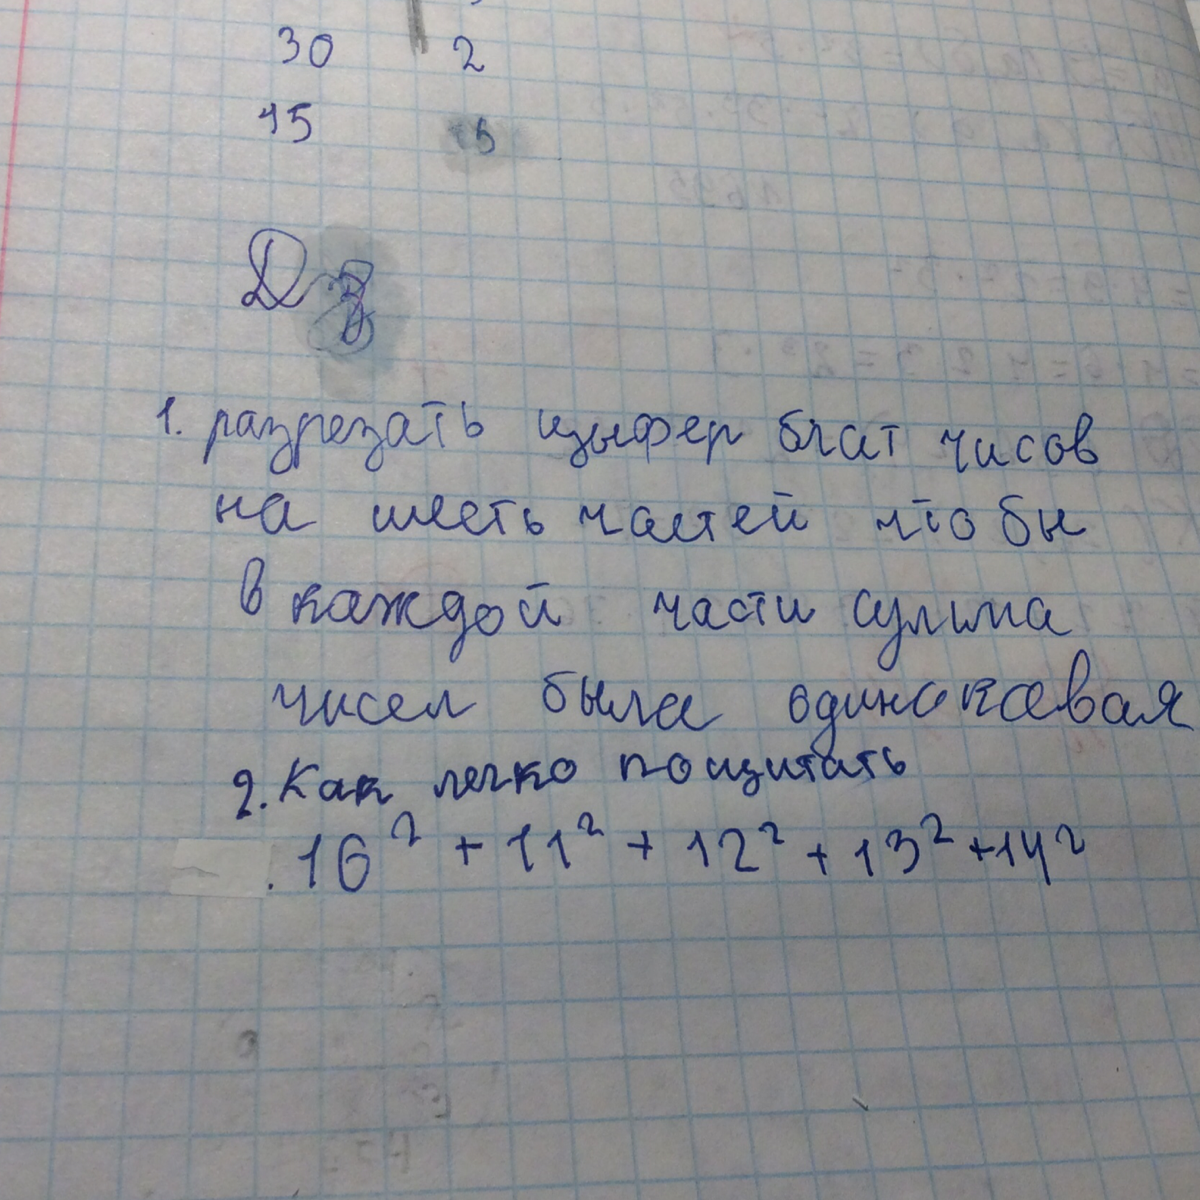 30 2
15 15
Дз
1. разрезать цыфер блат чисов
на шесть частей что бы
в каждой части сумма
чисел была одинокавая
2. Как легко пощитать
.10² + 11² + 12² + 13² + 14²